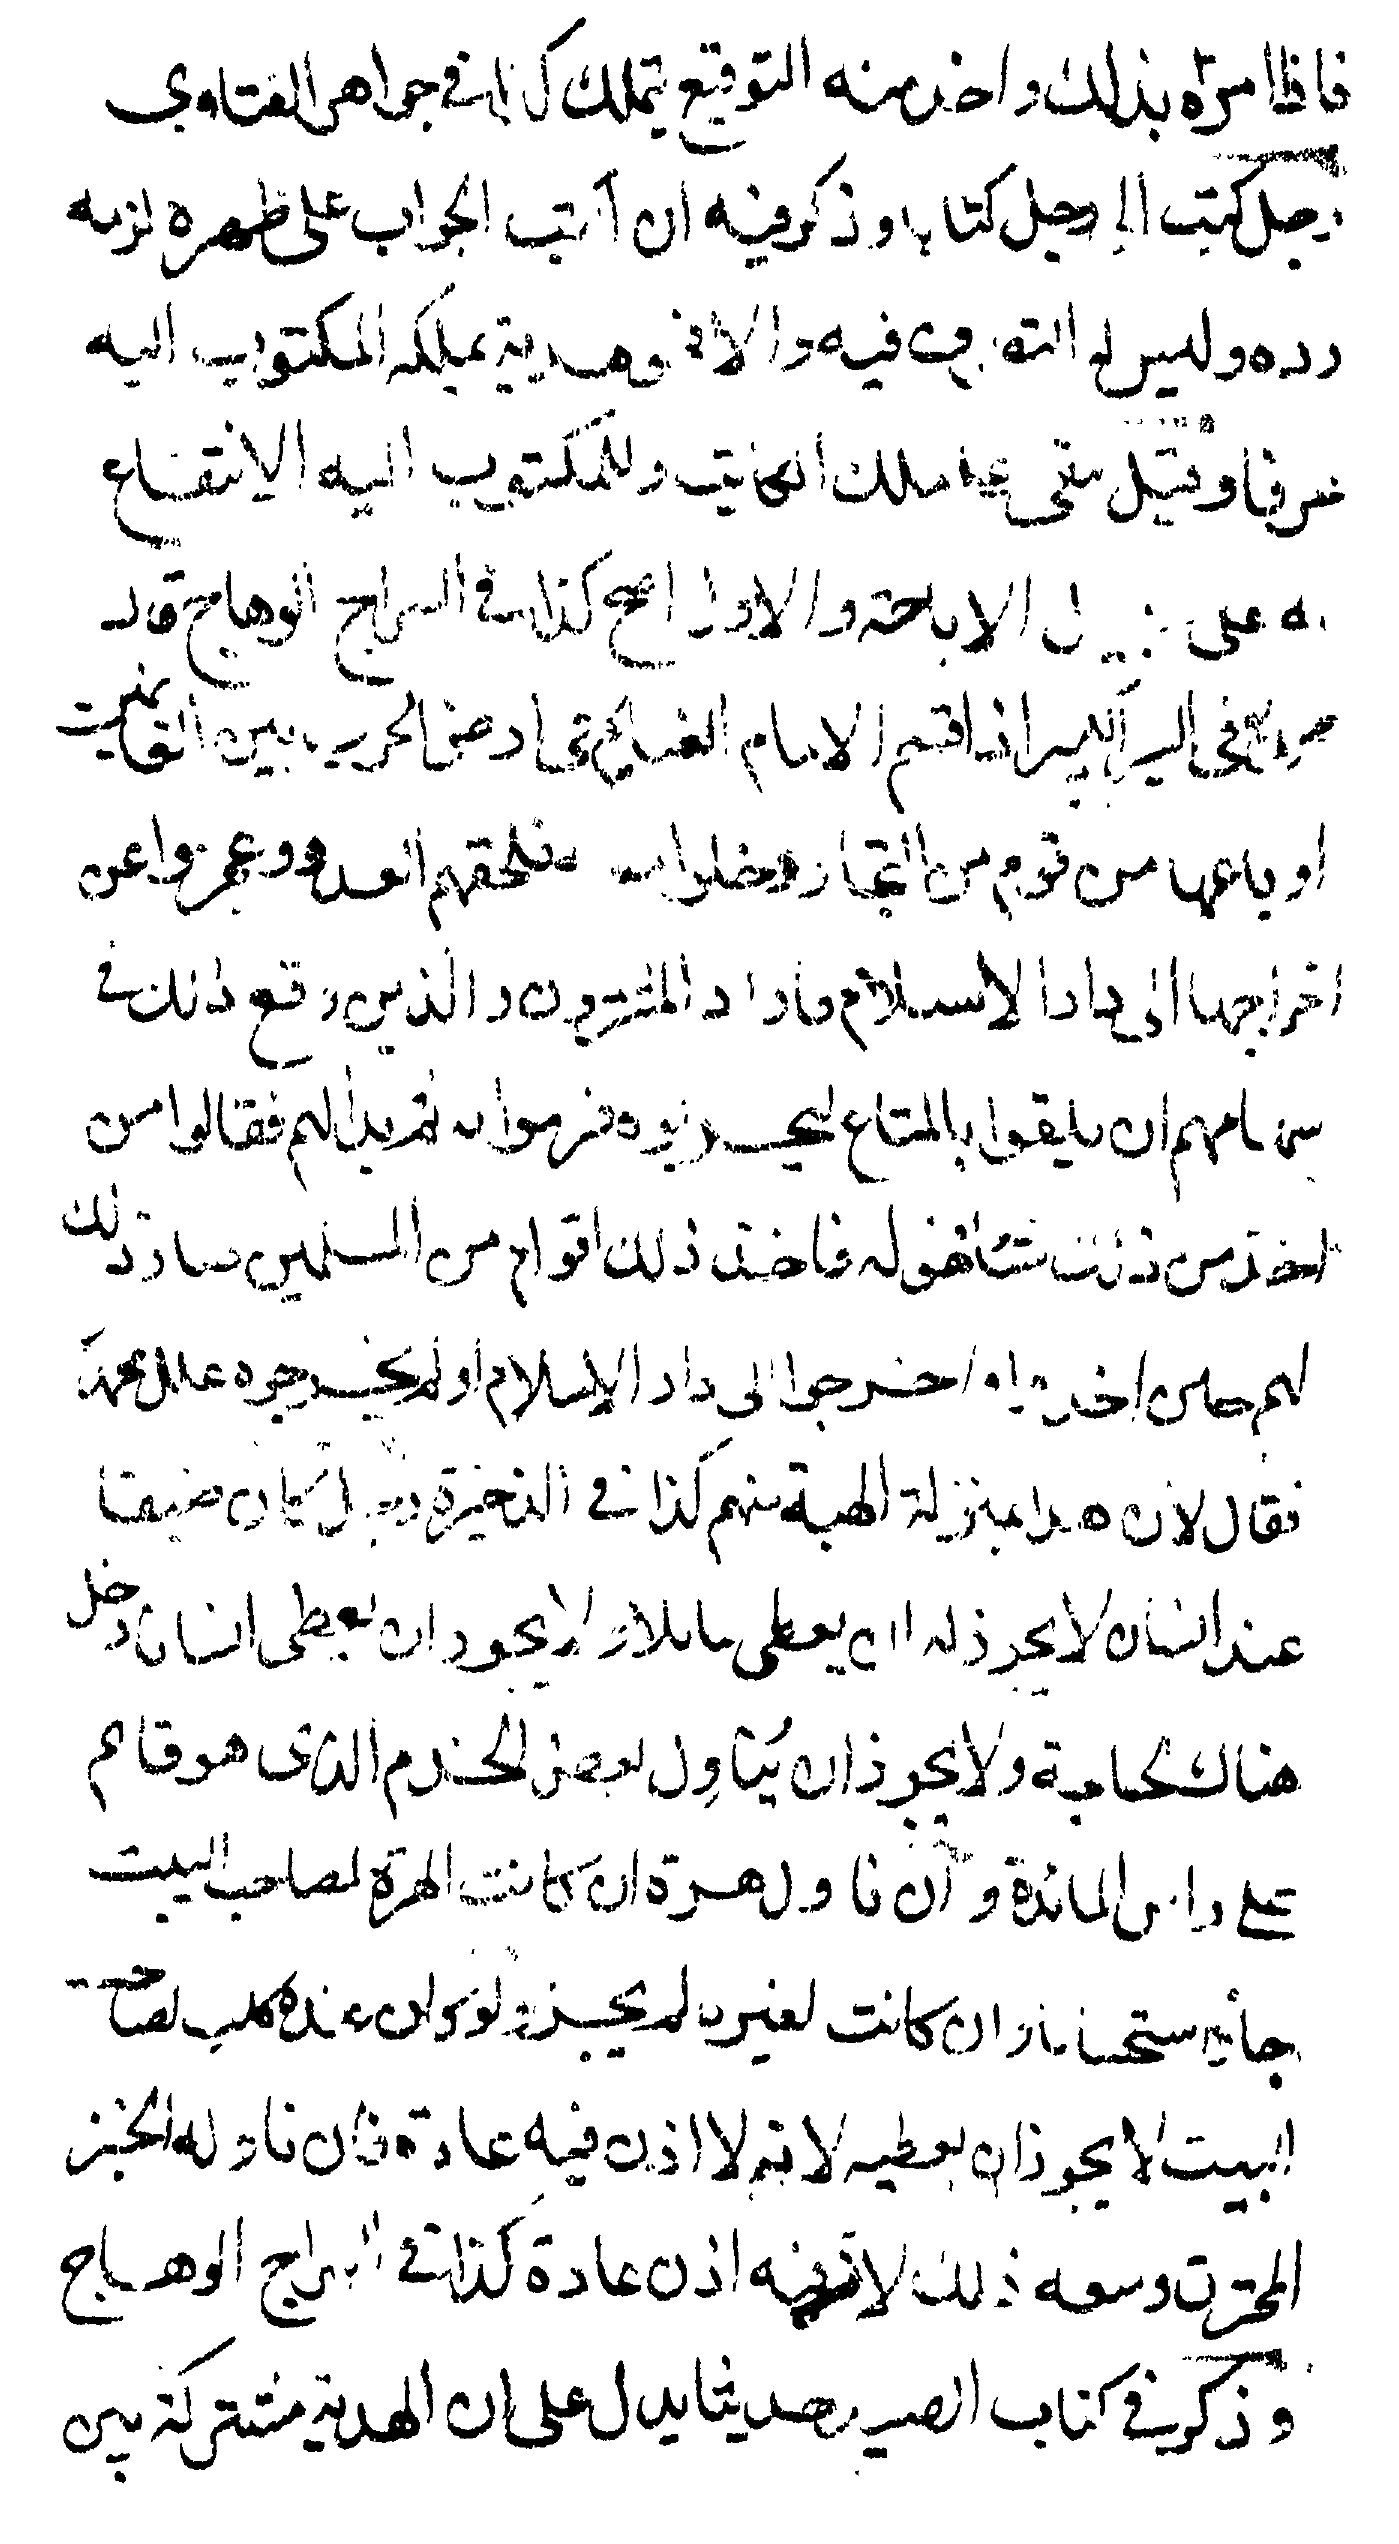 فاذا امره بذلك واخذ منه التوقيع يتملك كذا في جواهر الفتاوى
رجل كتب الى رجل كتابا وذكر فيه ان اكتب الجواب على ظهره لزمه
رده وليس له التصرف فيه والا فهو هدية يملكه المكتوب اليه
عرفا وقيل يبقى على ملك الكاتب وللمكتوب اليه الانتفاع
به على سبيل الاباحة والاول اصح كذا في السراج الوهاج قال
محمد في السير الكبير اذا قسم الامام الغنايم في دار الحرب بين الغانمين
او باعها من قوم من التجار فلحقهم العدو وعجزوا عن
اخراجها الى دار الاسلام فاراد المشترون والذين وقع ذلك في
سهامهم ان يلقوا بالمتاع ليحرقوه فرموا به ثم بدا لهم فقالوا من
اخذ من ذلك شيئا فهو له فاخذ ذلك اقوام من المسلمين صار ذلك
لهم حين اخذوا اخرجوا الى دار الاسلام او لم يخرجوه علل محمد
فقال لان هذا بمنزلة الهبة منهم كذا في الذخيرة رجل كان ضيفا
عند انسان لا يجوز له ان يعطى سائلا ولا يجوز ان يعطى انسانا دخل
هناك لحاجة ولا يجوز ان يناول بعض الخدم الذى هو قائم
على راس المائدة وان ناول هرة ان كانت الهرة لصاحب البيت
جاز استحسانا وان كانت لغيره لم يجز ولو كان عنده كلب لصاحب
البيت لا يجوز ان يعطيه لانه لا اذن فيه عادة فان ناوله الخبز
المحترق وسعه ذلك لان فيه اذن عادة كذا في السراج الوهاج
وذكر في كتاب الصيد حديثا يدل على ان الهدية مشتركة بين